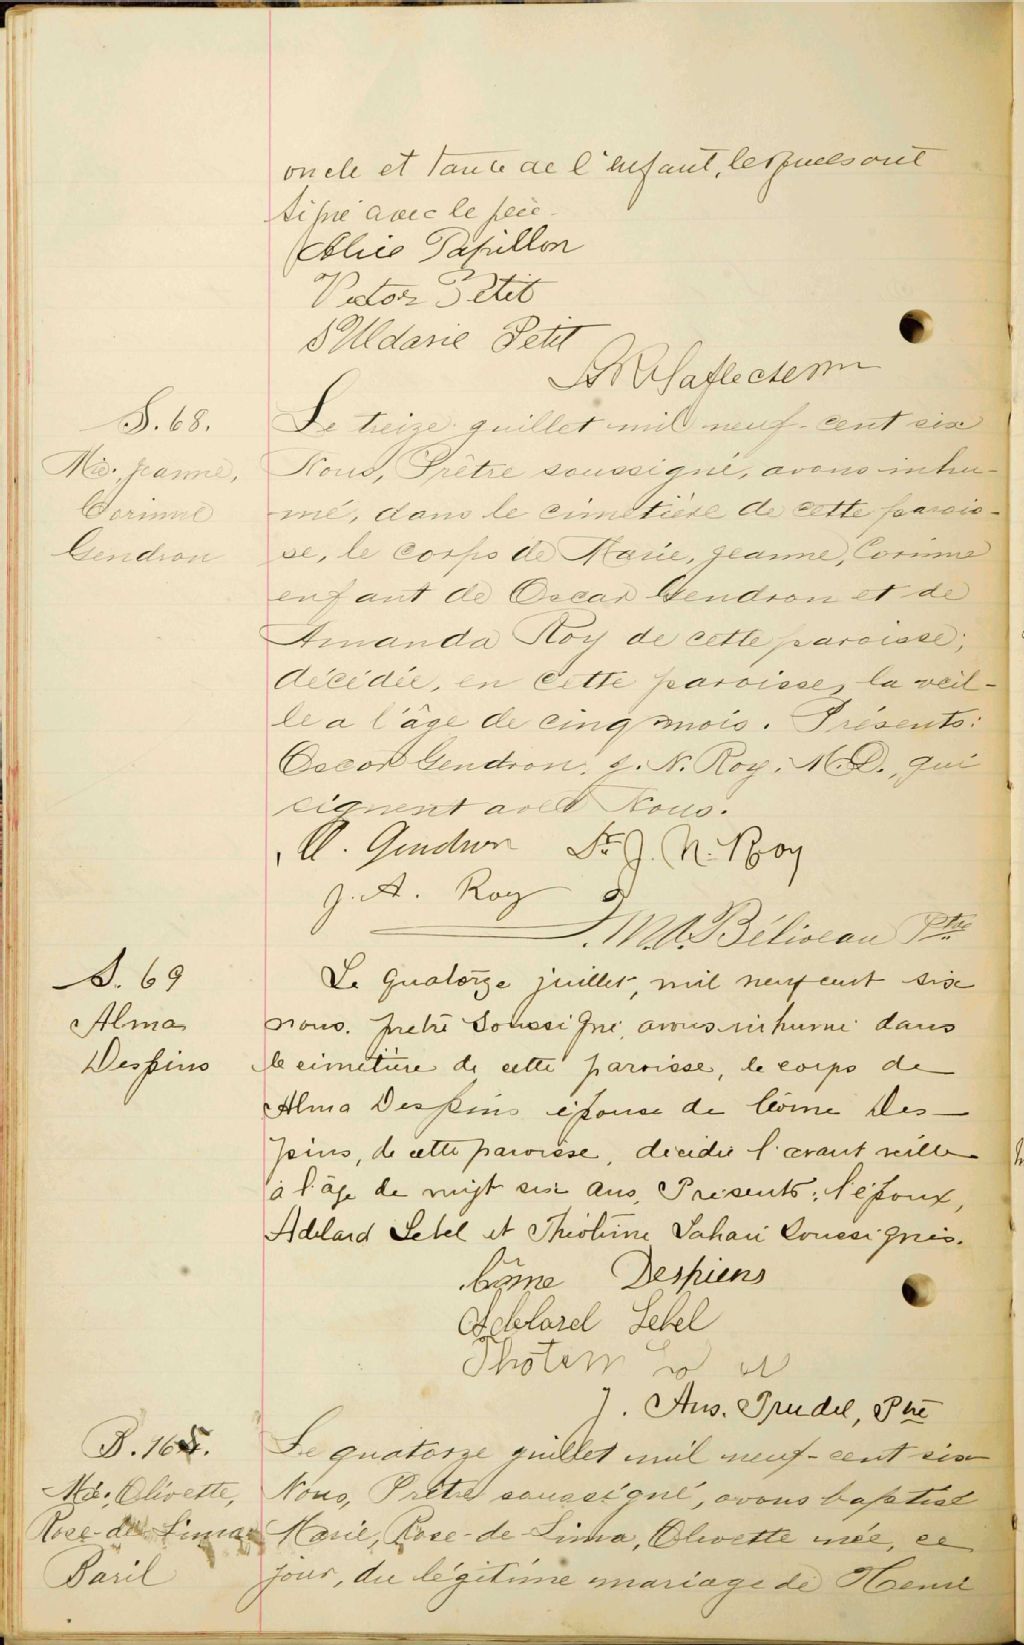 oncle et tante de l'enfant, lesquels ont
signé avec le père.
Alice Papillon
Victor Petit
Uldaric Petit
L. R. Laflèche ptre
S. 68.
Mie. Jeanne,
Corinne
Gendron
Le treize juillet mil neuf-cent six
Nous, Prêtre soussigné, avons inhu-
mé, dans le cimetière de cette parois-
se, le corps de Marie, Jeanne, Corinne
enfant de Oscar Gendron et de
Amanda Roy de cette paroisse;
décédée, en cette paroisse, la veil-
le a l'âge de cinq mois. Présents:
Oscar Gendron, J. N. Roy, M.D., qui
signent avec Nous.
O. Gendron Dr. J. N. Roy
J. A. Roy
M. A. Béliveau Ptre
S. 69
Alma
Despins
Le quatorze juillet, mil neuf cent six
nous. prêtre soussigné, avons inhumé dans
le cimetière de cette paroisse, le corps de
Alma Despins épouse de Côme Des-
pins, de cette paroisse, décédée l'avant veille
à l'âge de vingt six ans. Présents: l'époux,
Adélard Lebel et Théotime Sahari soussignés.
Côme Despiens
Adelard Lebel
J. Ans. Trudel, Ptre
B. 165.
Mie. Olivette,
Rose-de-Lima
Baril
Le quatorze juillet mil neuf-cent six
Nous, Prêtre soussigné, avons baptisé
Marie, Rose-de-Lima, Olivette née, ce
jour, du légitime mariage de Henri